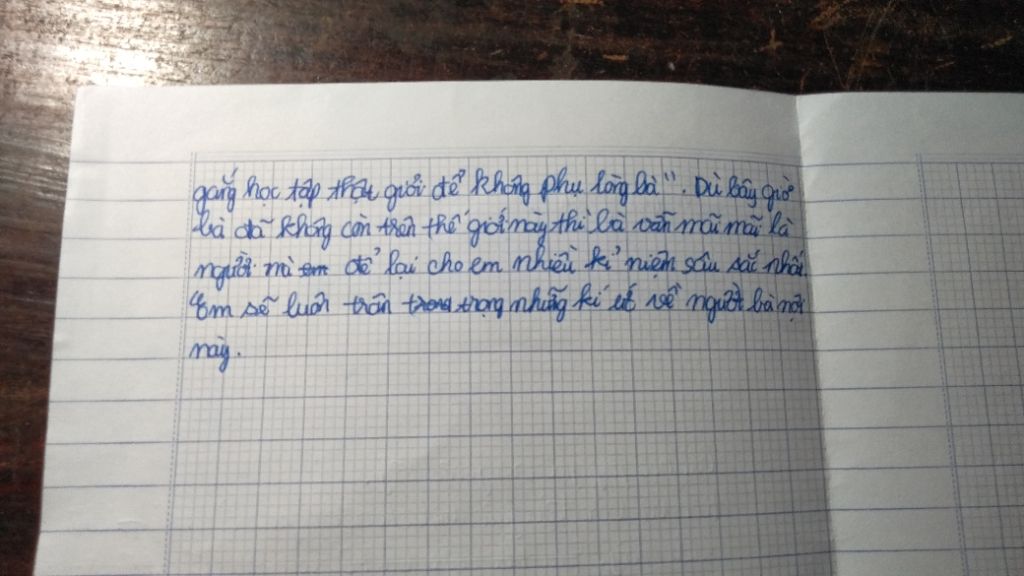 gắng học tập thật giỏi để không phụ lòng bà". Dù bây giờ
bà đã không còn trên thế giới này thì bà vẫn mãi mãi là
người mà để lại cho em nhiều kỉ niệm sâu sắc nhất.
Em sẽ luôn trân trọng những kí ức về người bà nội
này.